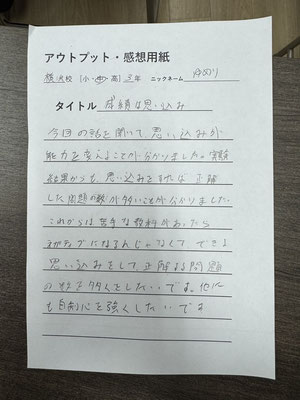 アウトプット・感想用紙
横浜校 (小・中・高) 3年 ニックネーム ゆのり
タイトル 成績は思い込み
今回の話を聞いて、思い込みが
能力を変えることが分かりました。実験
結果からも、思い込みをすれば正解
した問題の数が多いことが分かりました。
これからは苦手な教科があったら
ネガティブになるんじゃなくて、できる
思い込みをして正解する問題
の数を多くしたいです。他に
も自制心を強くしたいです